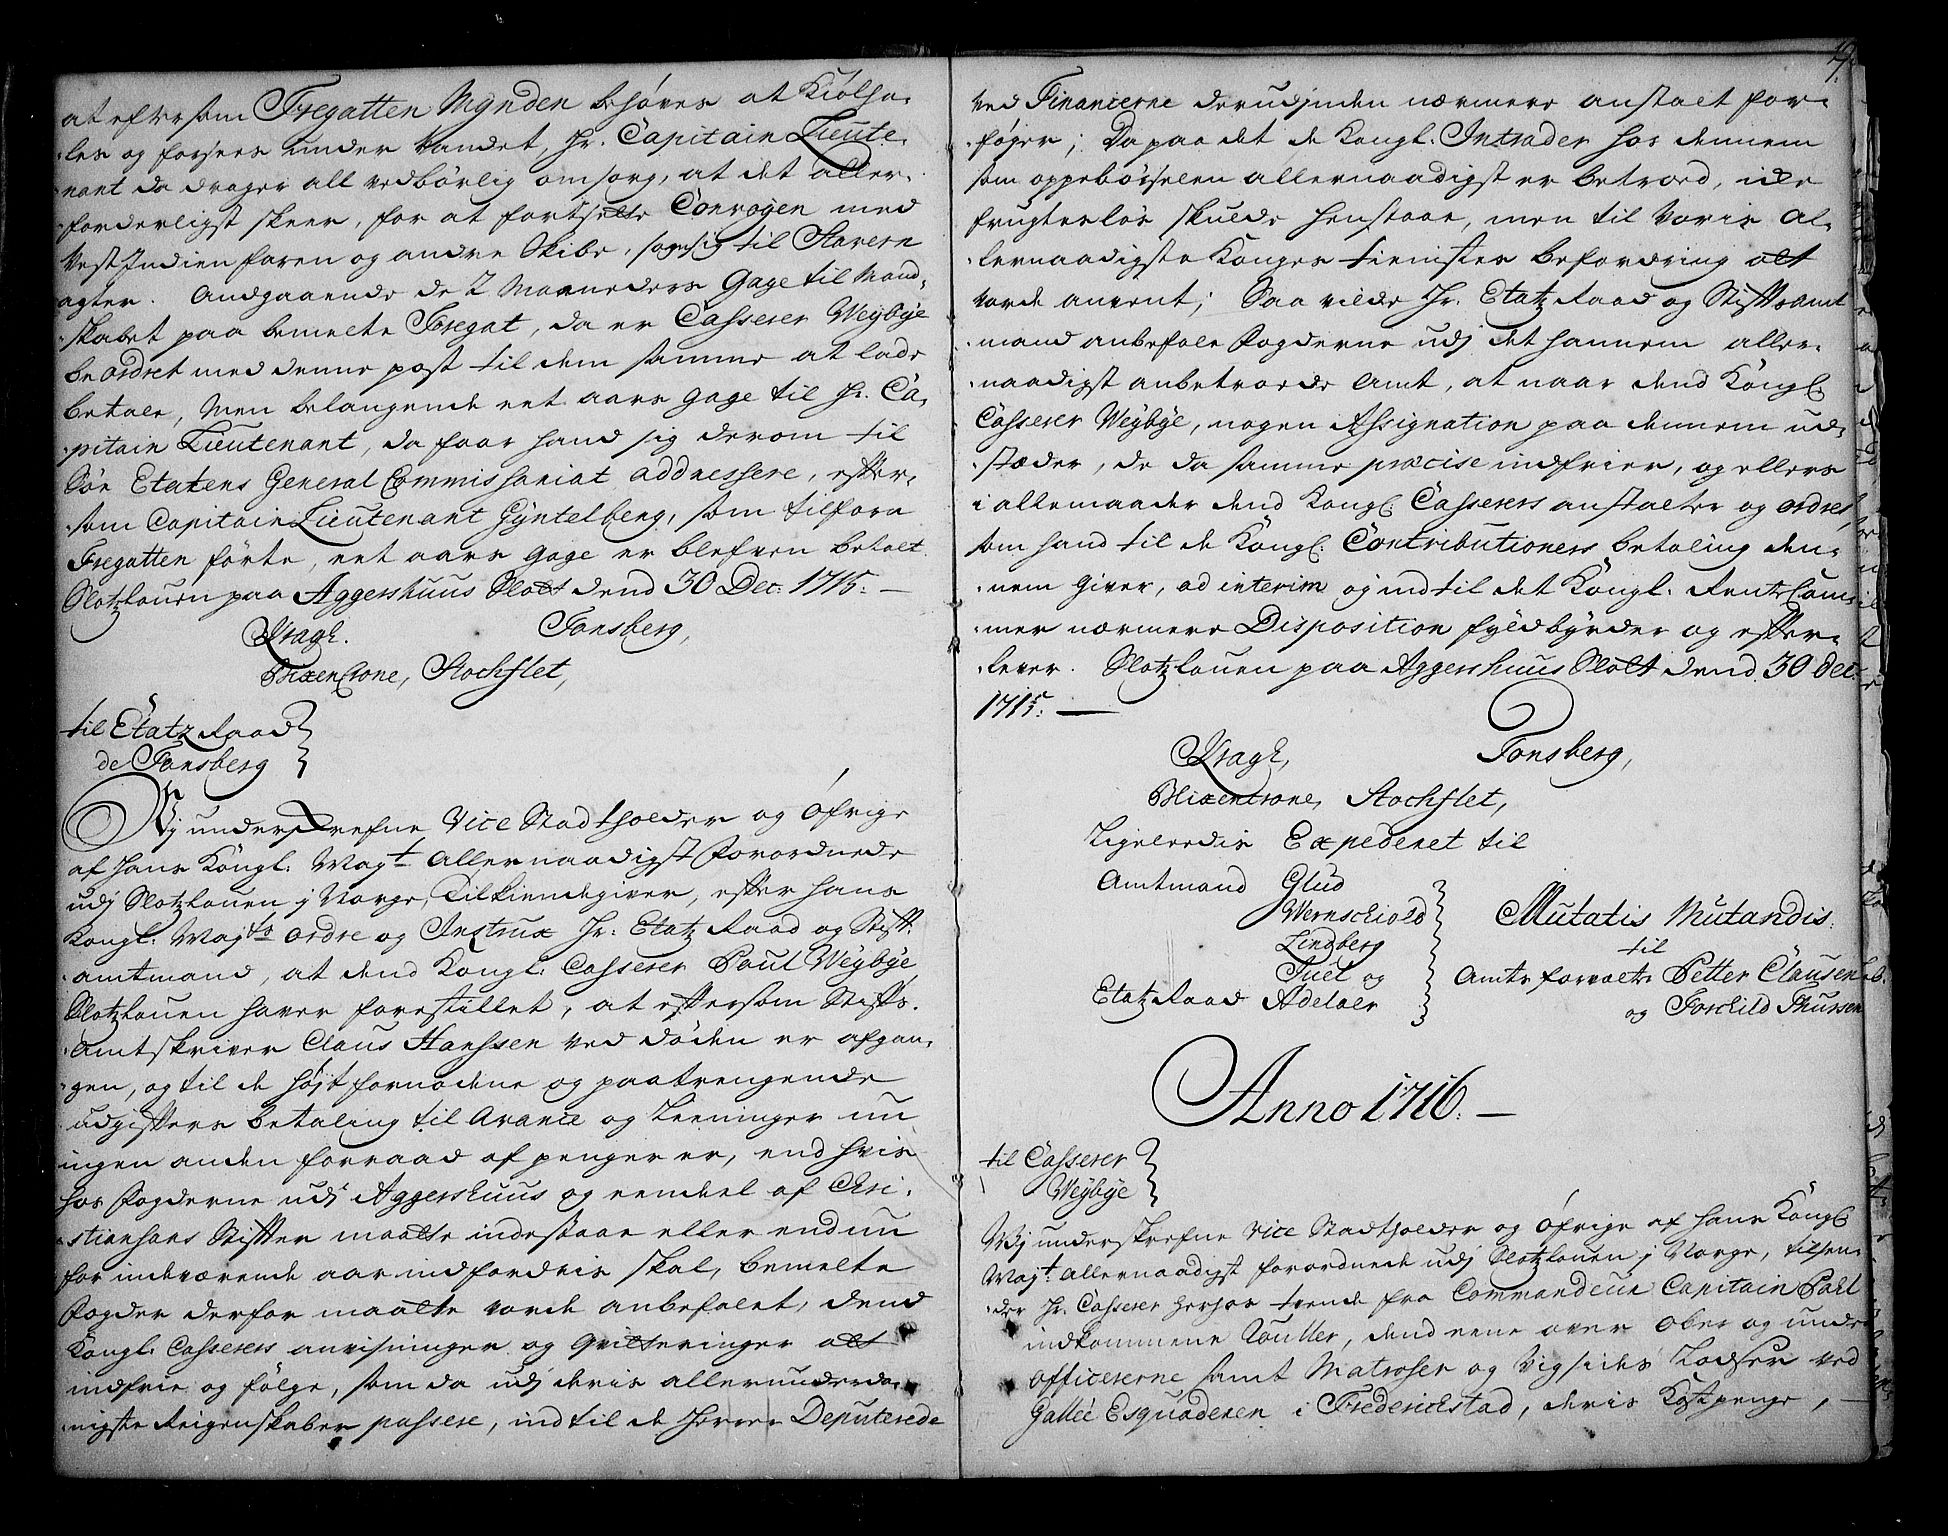 at eftersom Fregatten Mynden behöves at Kiölha-
les og forsees under Vandet, Hr. Capitain Lieute-
nant da drager all vedbörlig omsorg, at det aller-
forderligst skeer, for at fortsette Convoyen med
VestIndien faren og andre Skibe, som sig til Stavern
agter. Andgaaende de 2 Maaneders Gage til Mand-
skabet paa bemelte Fregat, da er Casserer Weybye
beordret med denne post til dem samme at lade
betale, Men belangende eet aars gage til Hr. Ca-
pitain Lieutenant, da faar hand sig derom til
Söe Etatens General Commissariat addressere, efter-
som Capitain Lieutenant Gyntelberg, som tilforn
Fregatten förte, eet aars gage er blefven betalt.
Slotzlouen paa Aggershuus Slott dend 30 Dec: 1715. —
Kragh. Tonsberg,
Blixencrone, Stochflet,
til Etatz Raad
de Tonsberg
Wj underskrefne Vice Stadtholder og Öfrige
af Hans Kongl. Majt. Allernaadigst Forordnede
udj Slotzlouen j Norge, Tilkiendegiver, efter hans
Kongl. Majts ordre og Instrux Hr. Etatz Raad og Stift-
amtmand, at dend Kongl. Casserer Poul Weybye
Slotzlouen haver forestillet, at eftersom Stifts-
Amtskriver Claus Hanssen ved döden er afgan-
gen, og til de höjt fornödene og paatrengende
udgifters betaling til Avance og Leeninger nu
ingen anden forraad af penger er, end hvis
hos Fogderne udj Aggershuus og eendeel af Chri-
stianhans Stifter maatte indestaae eller endnu
for indeværende aar indfordris skal, bemelte
Fogder derfor maatte vorde anbefalet, dend
Kongl. Casserers anvisninger og Qvitteringer att
indfrie og fölge, som da udj deris allerunderda-
nigste Reigenskaber passere, indtil de Herrer Deputerede
ved Financerne derudjnden nærmere anstalt for-
föyer; Da paa det de Kongl. Intrader hos dennem
som oppebörselen allernaadigst er betroed, icke
frugteslös skulde henstaae, men til Voris Al-
lernaadigste Konges tienistes befordring alt
vorde anvent; Saa vilde Hr. Etatz Raad og Stiftsamt
mand anbefale Fogderne udj det hannem aller-
naadigst anbetroede Amt, at naar dend Kongl.
Casserer Weybye, nogen Assignation paa dennem ud-
stæder, de da samme præcise indfrier, og ellers
i allemaader dend Kongl. Casserers anstalter og ordres,
som hand til de Kongl. Contributioners betaling den-
nem giver, ad interim og indtil det Kongl. RenteCam-
mer nærmere Disposition fyldbyrder og efter-
lever. Slotzlouen paa Aggershuus Slott dend. 30 dec:
1715. —
Kragh, Tonsberg,
Blixencrone, Stochflet,
Ligeleedis Expederet til
Amtmand Glud
Wernschiold
Lindberg
Juel og
Etatz Raad Adelaer
Mutatis Mutandis.
til
Amts forvalter Petter Clausen
og Torchild Thursen
Anno 1716. —
til Casserer
Weybye
Wj underskrefne Vice Stadtholder og Öfrige af Hans Kongl
Majt. Allernaadigst forordnede udj Slotzlouen j Norge, tilsen-
der Hr. Casserer herhos tvende fra Commandeur Capitain Poel
indkommene Roller, dend eene over Ober og under
officererne samt Matroser og Vigsiids Lodser ved
Gallée Esquaderen i Friderichstad, deris Kostpenge, —